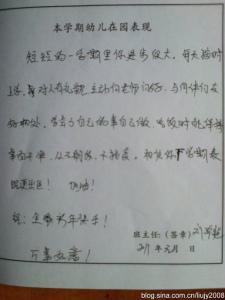 本学期幼儿在园表现
短短的一学期里你进步很大,每天按时
上学,对人有礼貌,主动向老师问好,与同伴们友
好相处,学会了自己的事自己做,吃饭时
桌面干净,从不挑食、不
现更出色! 加油!
祝:全家新年快乐!
班主任:(签章)
2011 年 元月 日
万事如意!
blog.sina.com.cn/liujy2008